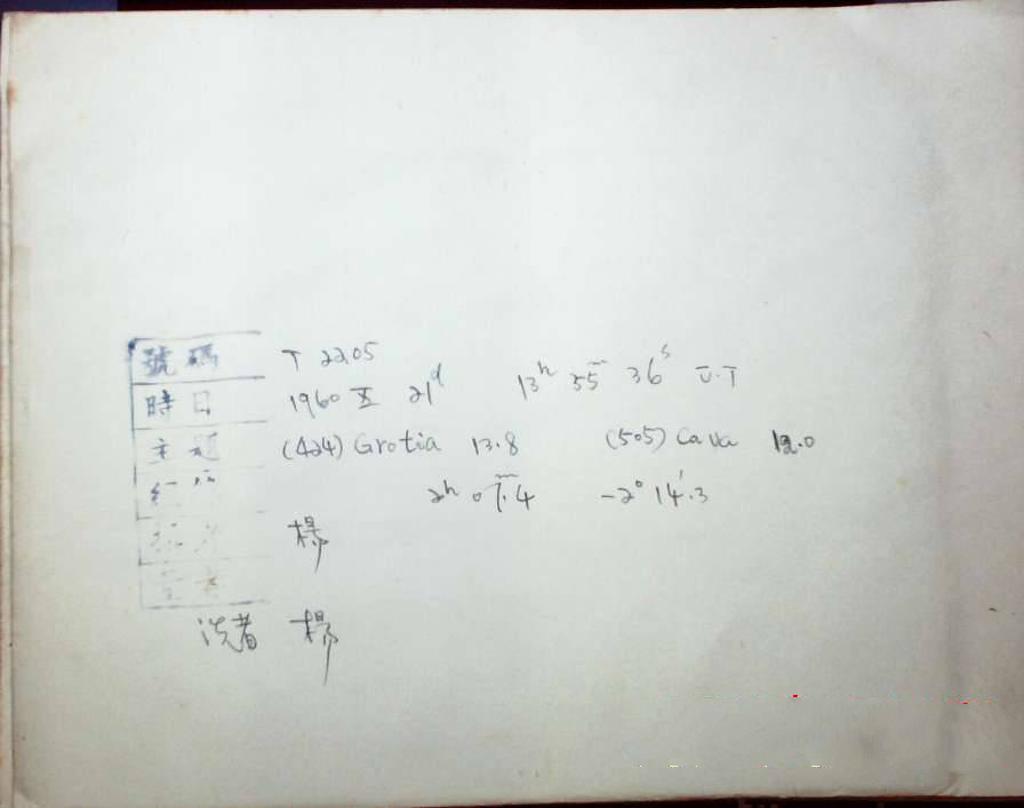 號碼 T 2205
時日 1960 五 21ᵈ 13ʰ 55ᵐ 36ˢ U.T
主題 (424) Grotia 13.8 (505) Cava 12.0
2ʰ 07ᵐ.4 -2° 14'.3
楊
洗者 楊